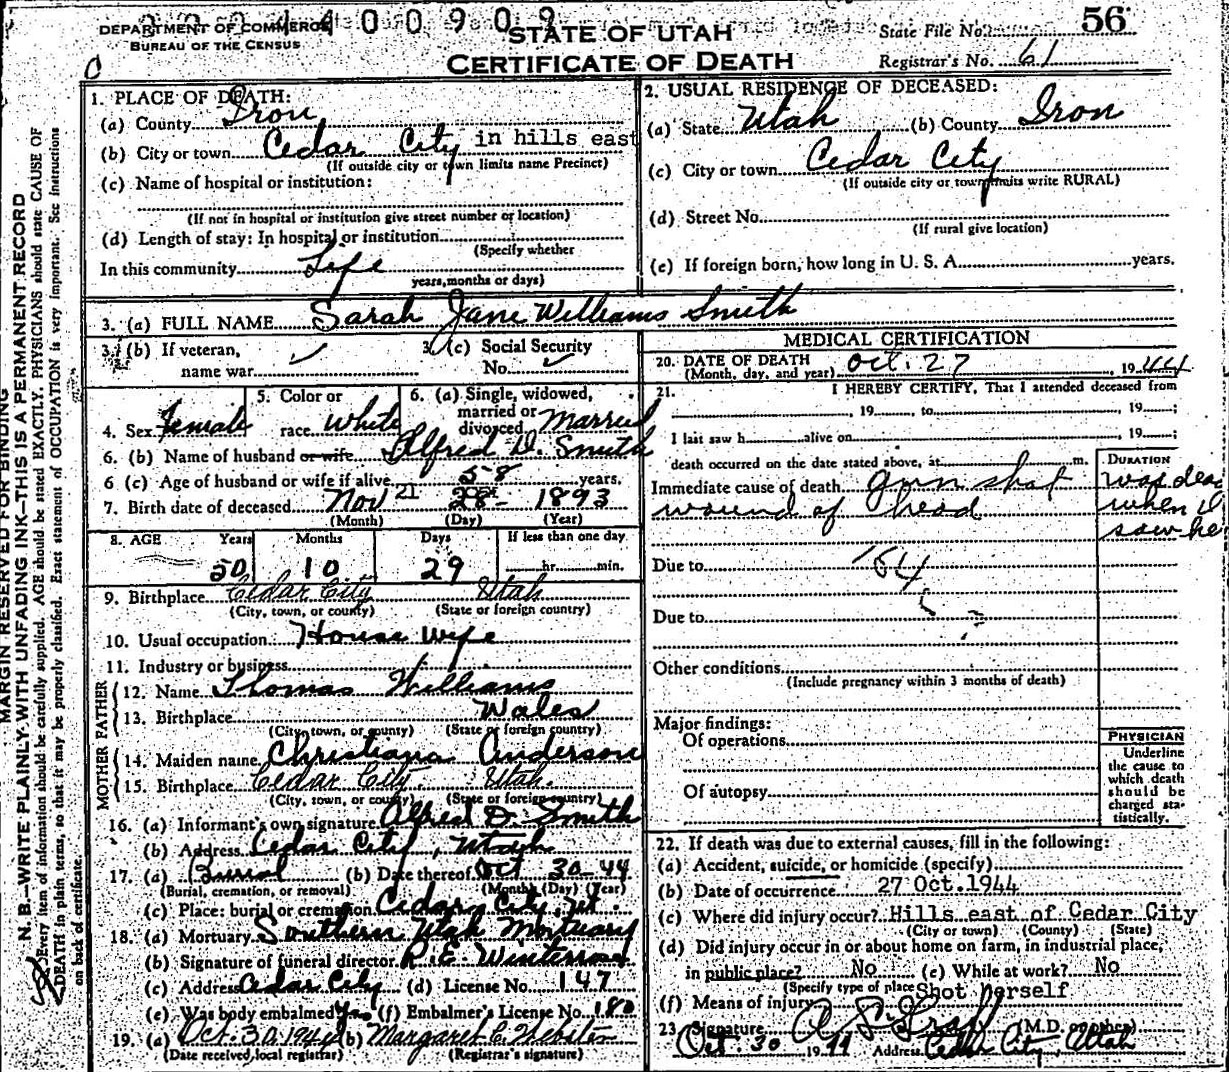 DEPARTMENT OF COMMERCE
BUREAU OF THE CENSUS
400909
STATE OF UTAH
CERTIFICATE OF DEATH
State File No. 56
Registrar's No. 61
MARGIN RESERVED FOR BINDING
N. B.—WRITE PLAINLY WITH UNFADING INK—THIS IS A PERMANENT RECORD
Every item of information should be carefully supplied. AGE should be stated EXACTLY. PHYSICIANS should state CAUSE OF
DEATH in plain terms, so that it may be properly classified. Exact statement of OCCUPATION is very important. See instructions
on back of certificate.
1. PLACE OF DEATH:
(a) County Iron
(b) City or town Cedar City in hills east
(If outside city or town limits name Precinct)
(c) Name of hospital or institution:
(If not in hospital or institution give street number or location)
(d) Length of stay: In hospital or institution
(Specify whether
In this community Life
years, months or days)
2. USUAL RESIDENCE OF DECEASED:
(a) State Utah (b) County Iron
(c) City or town Cedar City
(If outside city or town limits write RURAL)
(d) Street No.
(If rural give location)
(e) If foreign born, how long in U. S. A. years.
3. (a) FULL NAME Sarah Jane Williams Smith
3. (b) If veteran, name war ✓
3. (c) Social Security No. ✓
4. Sex Female
5. Color or race White
6. (a) Single, widowed, married or divorced Married
6. (b) Name of husband or wife Alfred D. Smith
6 (c) Age of husband or wife if alive 58 years.
7. Birth date of deceased Nov 21 28 1893
(Month) (Day) (Year)
8. AGE Years Months Days If less than one day
50 10 29 hr. min.
9. Birthplace Cedar City Utah
(City, town, or county) (State or foreign country)
10. Usual occupation House Wife
11. Industry or business
FATHER
12. Name Thomas Williams
13. Birthplace Wales
(City, town, or county) (State or foreign country)
MOTHER
14. Maiden name Christiana Anderson
15. Birthplace Cedar City, Utah.
(City, town, or county) (State or foreign country)
16. (a) Informant's own signature Alfred D. Smith
(b) Address Cedar City, Utah
17. (a) Burial (b) Date thereof Oct 30 44
(Burial, cremation, or removal) (Month) (Day) (Year)
(c) Place: burial or cremation Cedar City, Ut.
18. (a) Mortuary Southern Utah Mortuary
(b) Signature of funeral director R. E. Winterrose
(c) Address Cedar City (d) License No. 147
(e) Was body embalmed Yes (f) Embalmer's License No. 180
19. (a) Oct. 30. 1944 (b) Margaret C. Webster
(Date received local registrar) (Registrar's signature)
MEDICAL CERTIFICATION
20. DATE OF DEATH Oct. 27 1944
(Month, day, and year)
21. I HEREBY CERTIFY, That I attended deceased from
, 19 , to , 19 ;
I last saw h alive on , 19 ;
death occurred on the date stated above, at m.
DURATION
Immediate cause of death gun shot
wound of head
was dead
when I
saw he
Due to 164
Due to
Other conditions
(Include pregnancy within 3 months of death)
Major findings:
Of operations
Of autopsy
PHYSICIAN
Underline
the cause to
which death
should be
charged sta-
tistically.
22. If death was due to external causes, fill in the following:
(a) Accident, suicide, or homicide (specify)
(b) Date of occurrence 27 Oct. 1944
(c) Where did injury occur? Hills east of Cedar City
(City or town) (County) (State)
(d) Did injury occur in or about home on farm, in industrial place,
in public place? No (e) While at work? No
(Specify type of place)
(f) Means of injury Shot herself
23. Signature (M.D. or other)
Oct. 30 1944 Address Cedar City, Utah